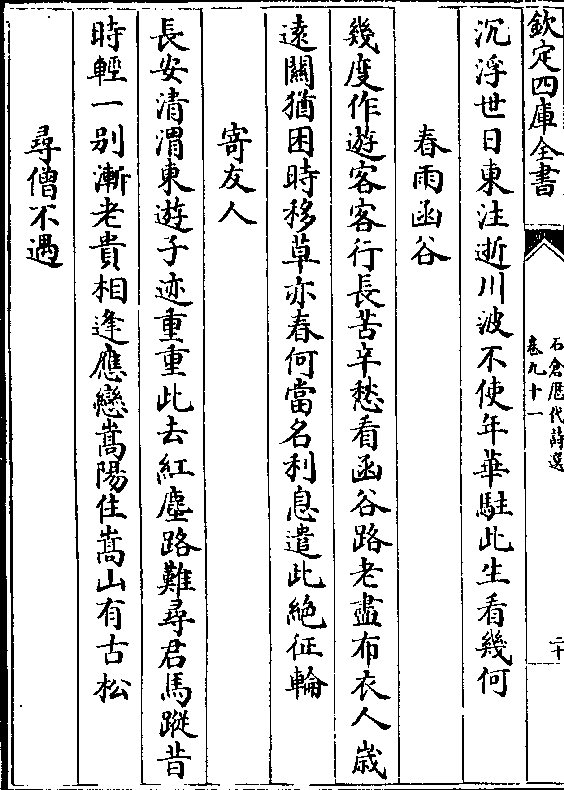 欽定四庫全書
石倉歴代詩選
卷九十一
二十
沉浮世日東注逝川波不使年華駐此生看幾何
春雨函谷
幾度作遊客客行長苦辛愁看函谷路老盡布衣人嵗
遠關猶困時移草亦春何當名利息遣此絶征輪
寄友人
長安清渭東遊子迹重重此去紅塵路難尋君馬蹤昔
時輕一别漸老貴相逢應戀嵩陽住嵩山有古松
尋僧不遇